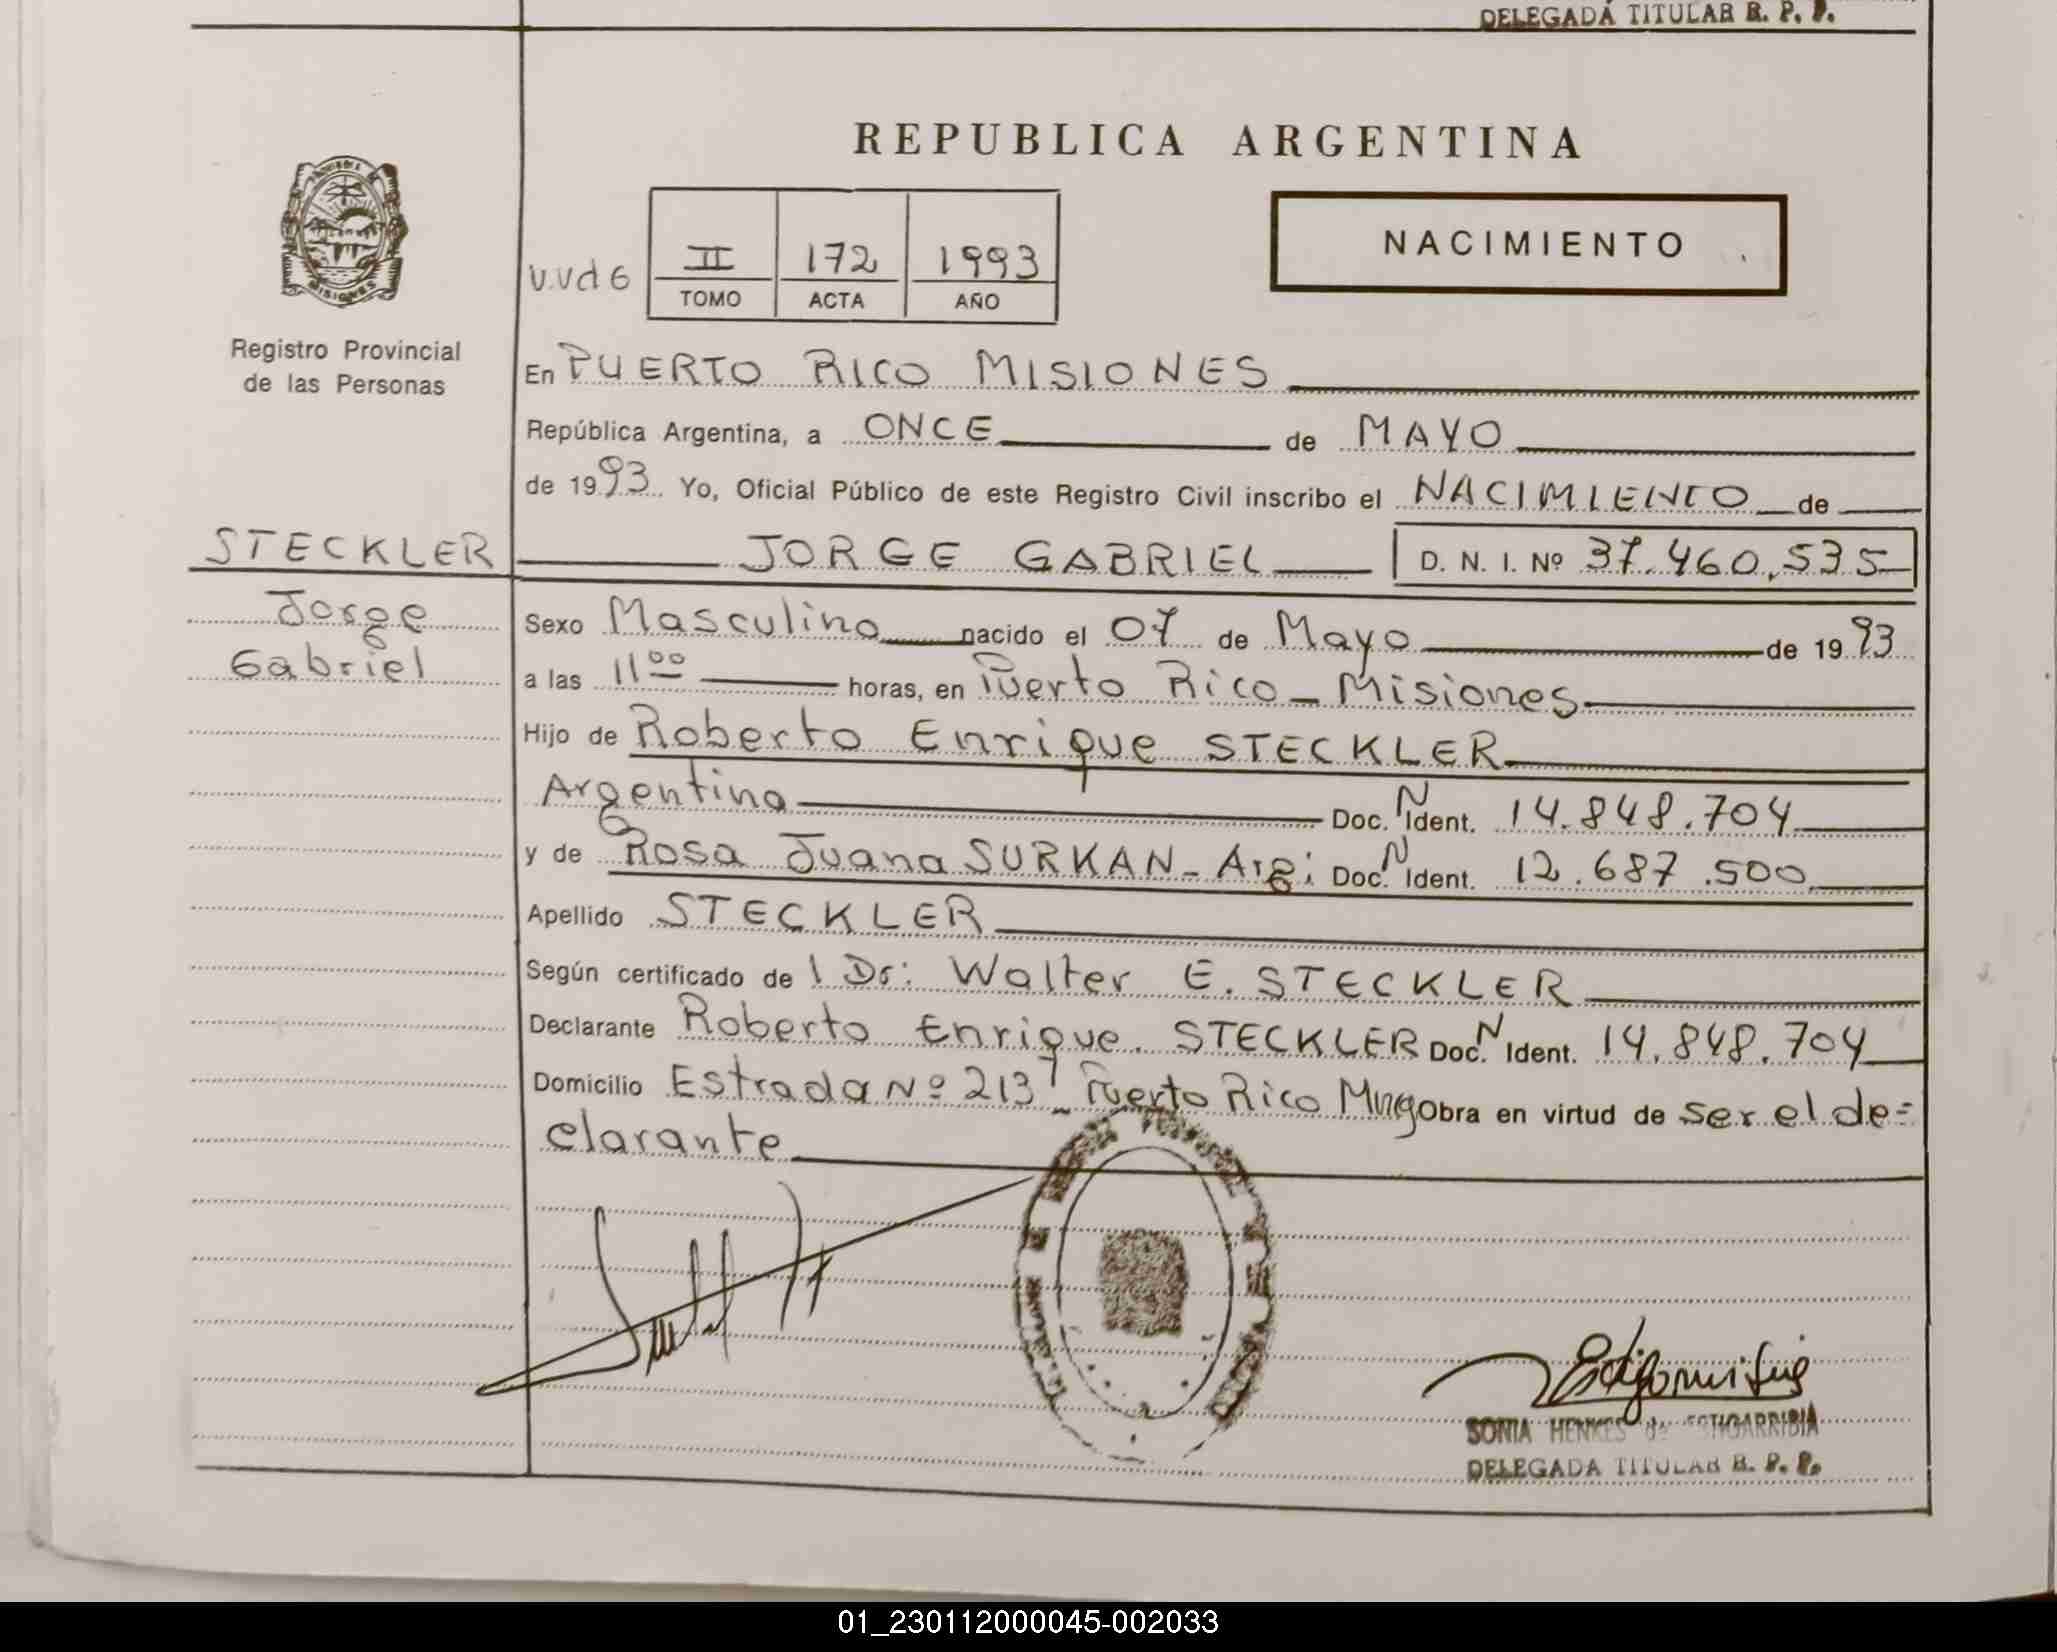 DELEGADA TITULAR R. P. P.
REPUBLICA ARGENTINA
NACIMIENTO
V.Vd6
II 172 1993
TOMO ACTA AÑO
MISIONES
Registro Provincial
de las Personas
En PUERTO RICO MISIONES
República Argentina, a ONCE de MAYO
de 1993 Yo, Oficial Público de este Registro Civil inscribo el NACIMIENTO de
STECKLER JORGE GABRIEL D. N. I. Nº 37.460.535
Jorge
Gabriel
Sexo Masculino nacido el 07 de Mayo de 1993
a las 11 00 horas, en Puerto Rico - Misiones
Hijo de Roberto Enrique STECKLER
Argentina Doc. N Ident. 14.848.704
y de Rosa Juana SURKAN - Arg: Doc. N Ident. 12.687.500
Apellido STECKLER
Según certificado de l Dr: Walter E. STECKLER
Declarante Roberto Enrique. STECKLER Doc. N Ident. 14.848.704
Domicilio Estrada Nº 213 - Puerto Rico Mnes Obra en virtud de ser el de=
clarante
SONIA HENKES de ESTIGARRIBIA
DELEGADA TITULAR R. P. P.
01_230112000045-002033